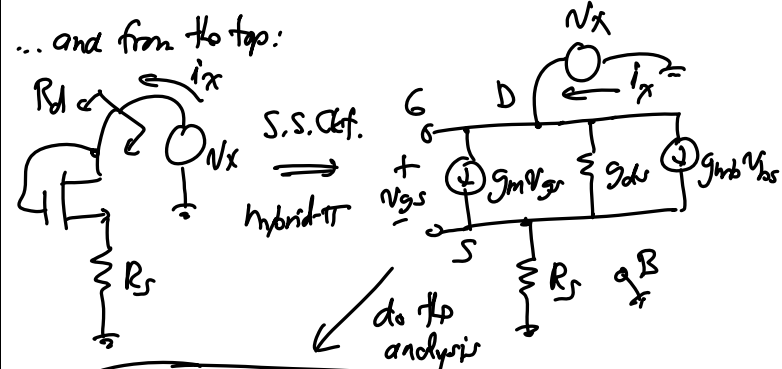 ... and from the top:
Rd
ix
Vx
S.S. Ckt.
hybrid-π
Vx
ix
G
D
+
vgs
-
gmvgs
gds
gmbvbs
S
Rs
Rs
B
do the
analysis